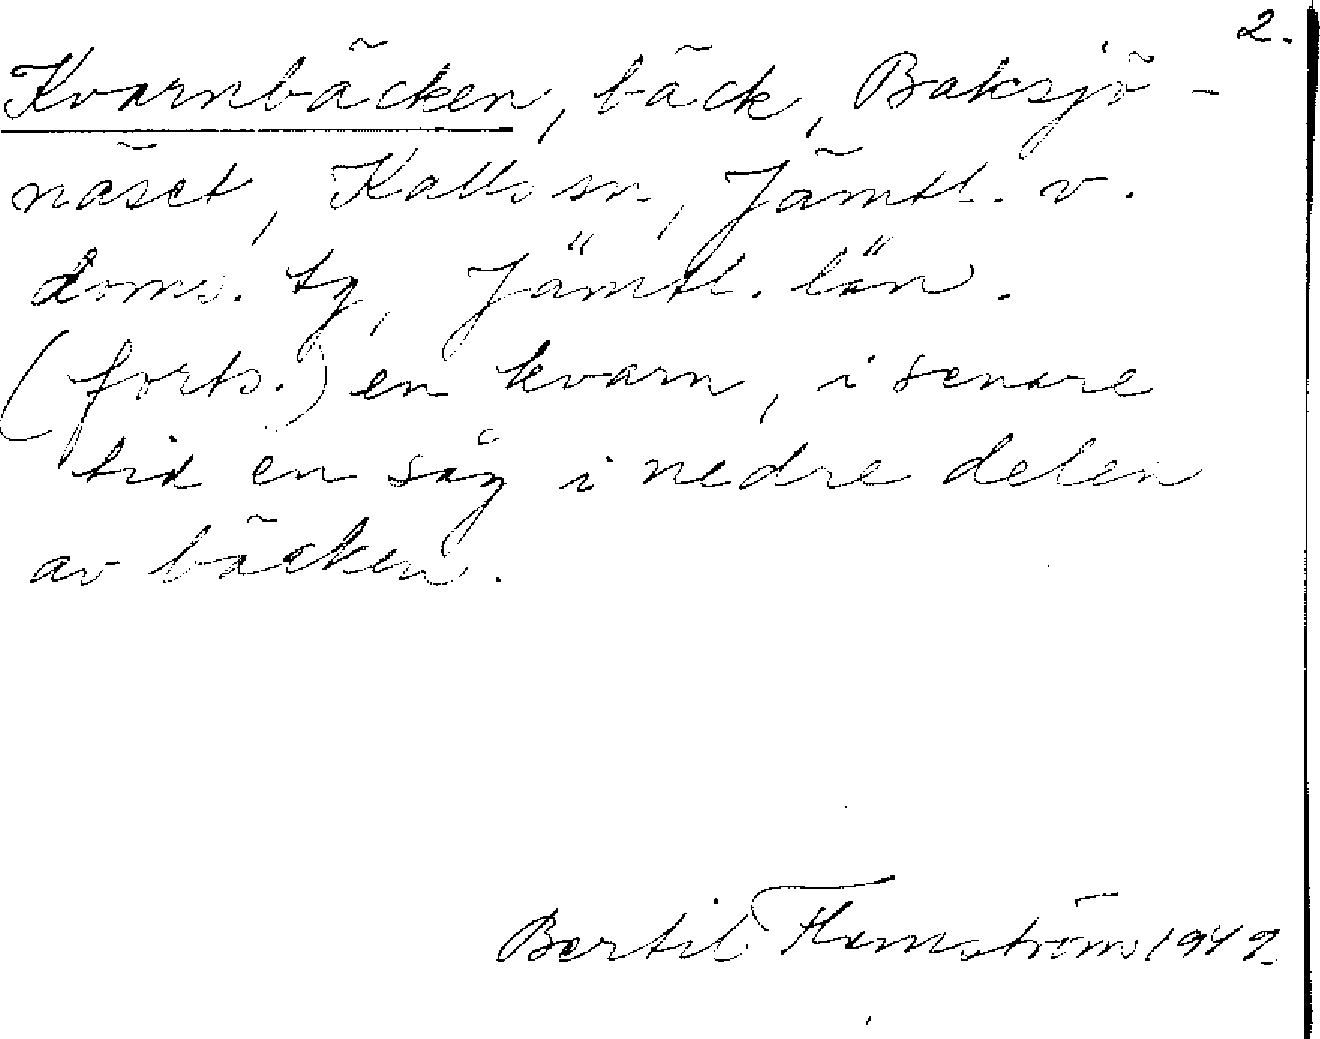 2.
Kvarnbäcken, bäck, Baksjö-
näset, Kalls sn, Jämtl. v.
doms. tg, Jämtl. län.
(forts.) en kvarn, i senare
tid en såg i nedre delen
av bäcken.
Bertil Flemström 1949.